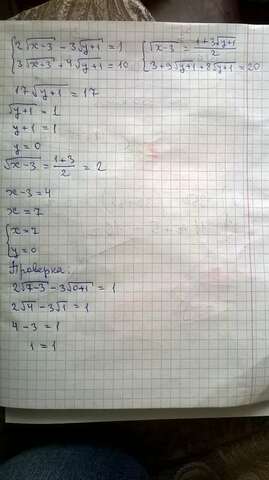 {2√(x-3) - 3√(y+1) = 1 {√(x-3) = (1+3√(y+1))/2
{3√(x+3) + 4√(y+1) = 10 {3+9√(y+1)+8√(y+1) = 20
17√(y+1) = 17
√(y+1) = 1
y+1 = 1
y = 0
√(x-3) = (1+3)/2 = 2
x-3=4
x = 7
{x=7
{y=0
Проверка:
2√(7-3) - 3√(0+1) = 1
2√4 - 3√1 = 1
4 - 3 = 1
1 = 1